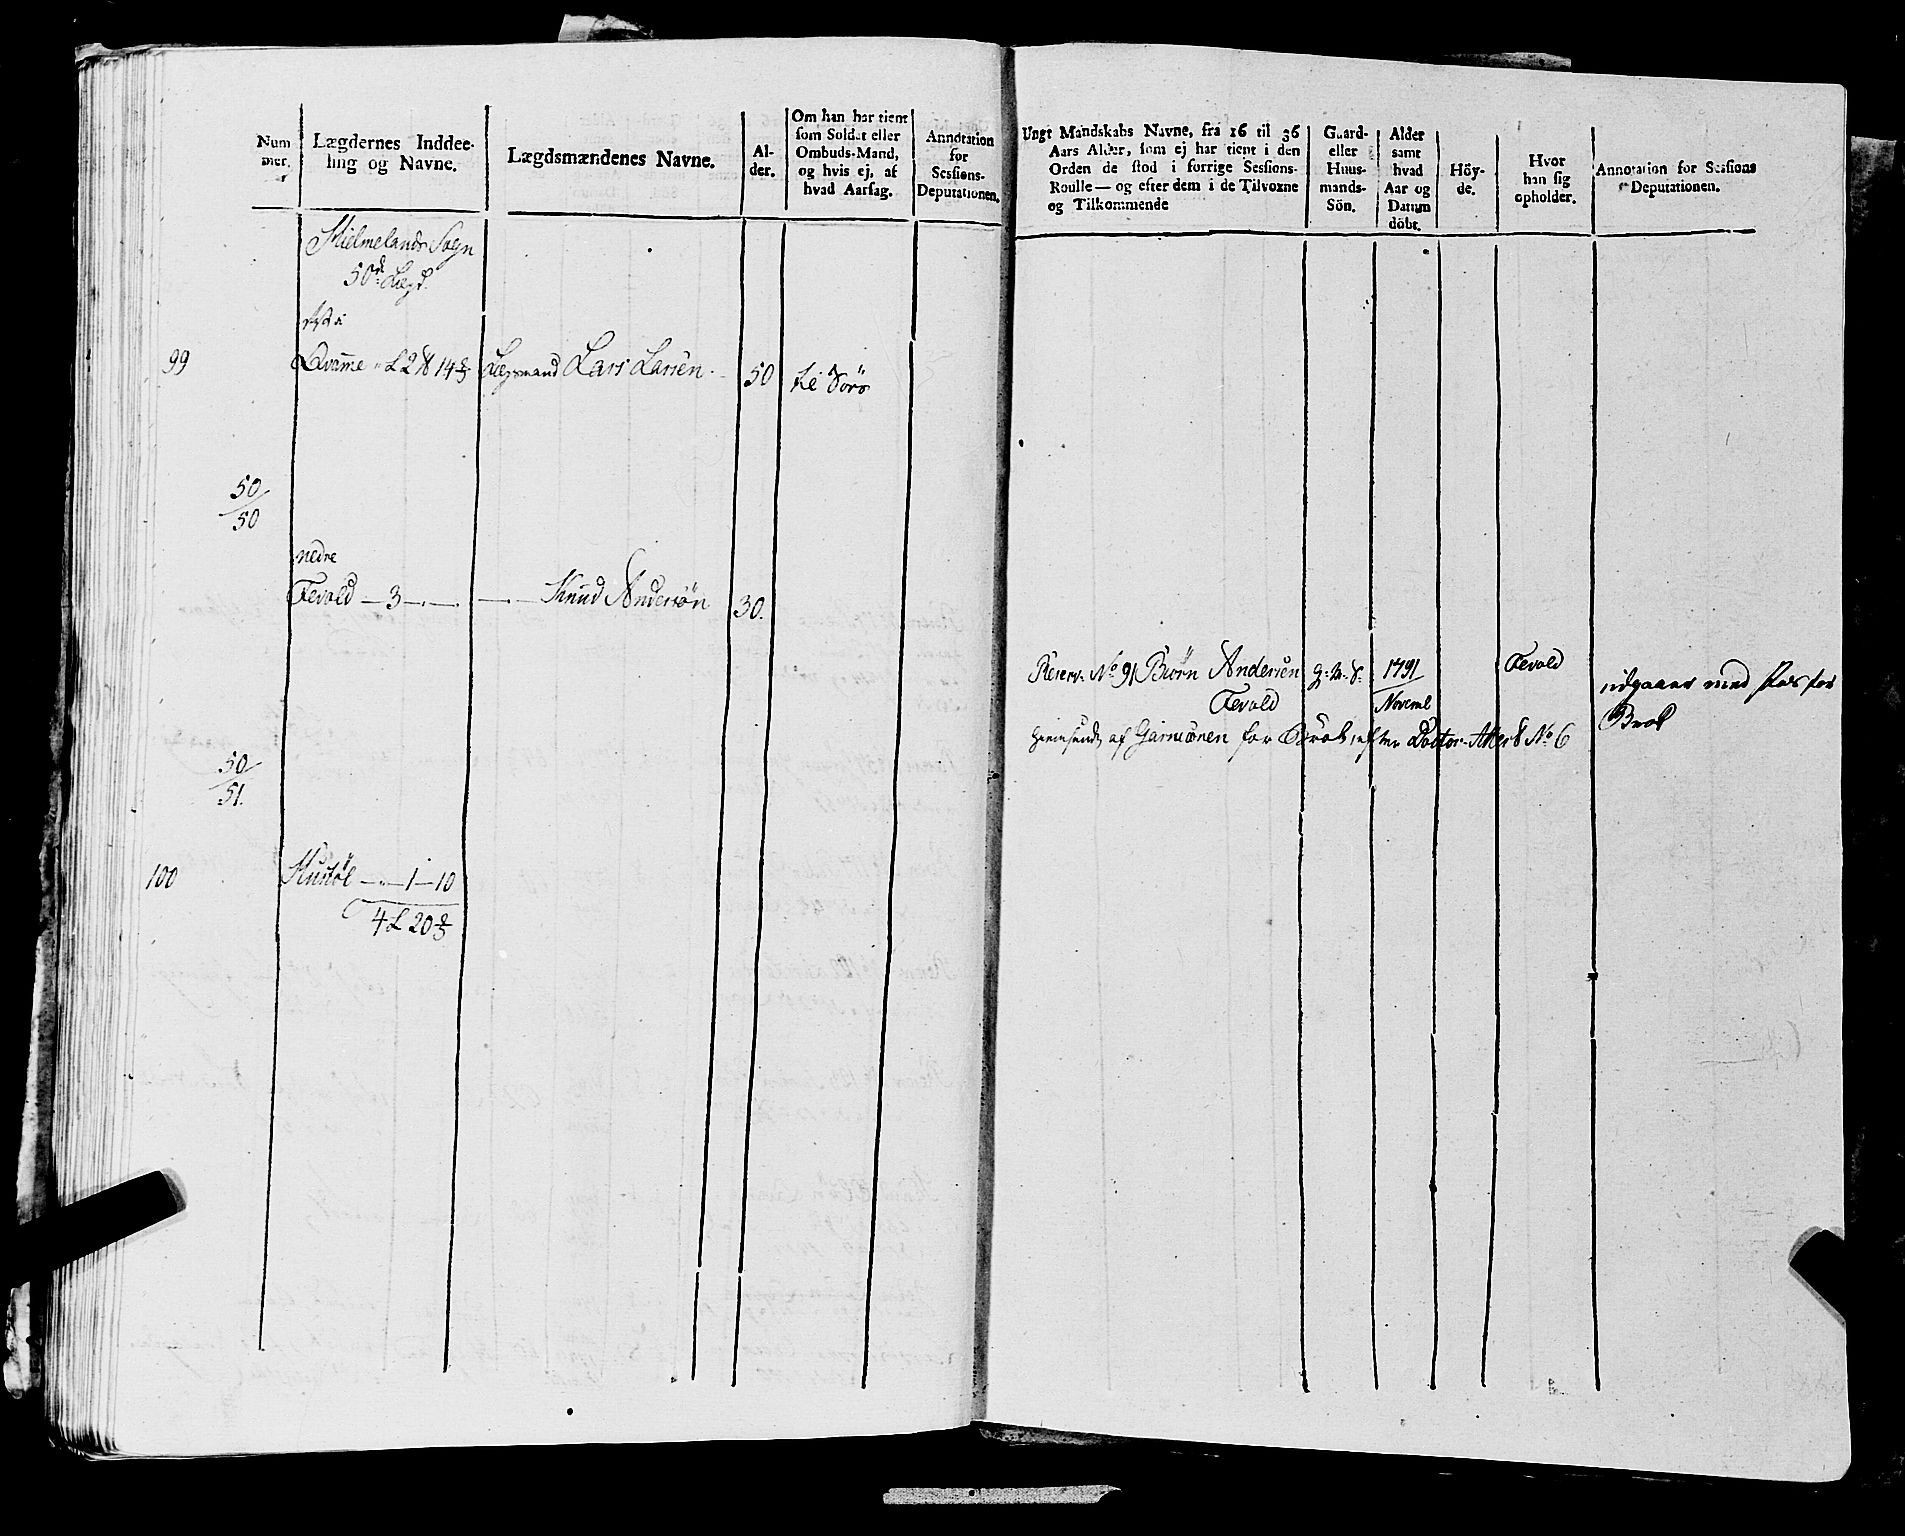 Num
mer.
Lægdernes Inddee-
ling og Navne.
Lægdsmændenes Navne.
Al-
der.
Om han har tient
som Soldat eller
Ombuds-Mand,
og hvis ej, af
hvad Aarsag.
Annotation
for
Sessions-
Deputationen.
Hielmelands Sogn
50de Lægd.
99
Qvame " L 2 14 2/3 Lægsmand Lars Larsen 50
50/50
nedre
Tevold — 3 — Knud Andersøn 30.
50/51.
100
Hustøl — 1 — 10
4 L 20 2/3
Ungt Mandskabs Navne, fra 16 til 36
Aars Alder, som ej har tient i den
Orden de stod i forrige Sessions-
Roulle — og efter dem i de Tilvoxne
og Tilkommende
Gaard-
eller
Huus-
mands-
Sön.
Alder
samt
hvad
Aar og
Datum
döbt.
Höy-
de.
Hvor
han sig
opholder.
Annotation for Sessions
Deputationen.
Reserv. No 91 Biørn Andersen g: m: S: 1791 Tevold
Tevold Noveml
udgaaer med Pas for
Brok
hiemsendt af Garnisonen for Brok, efter Doctor-Attest No 6